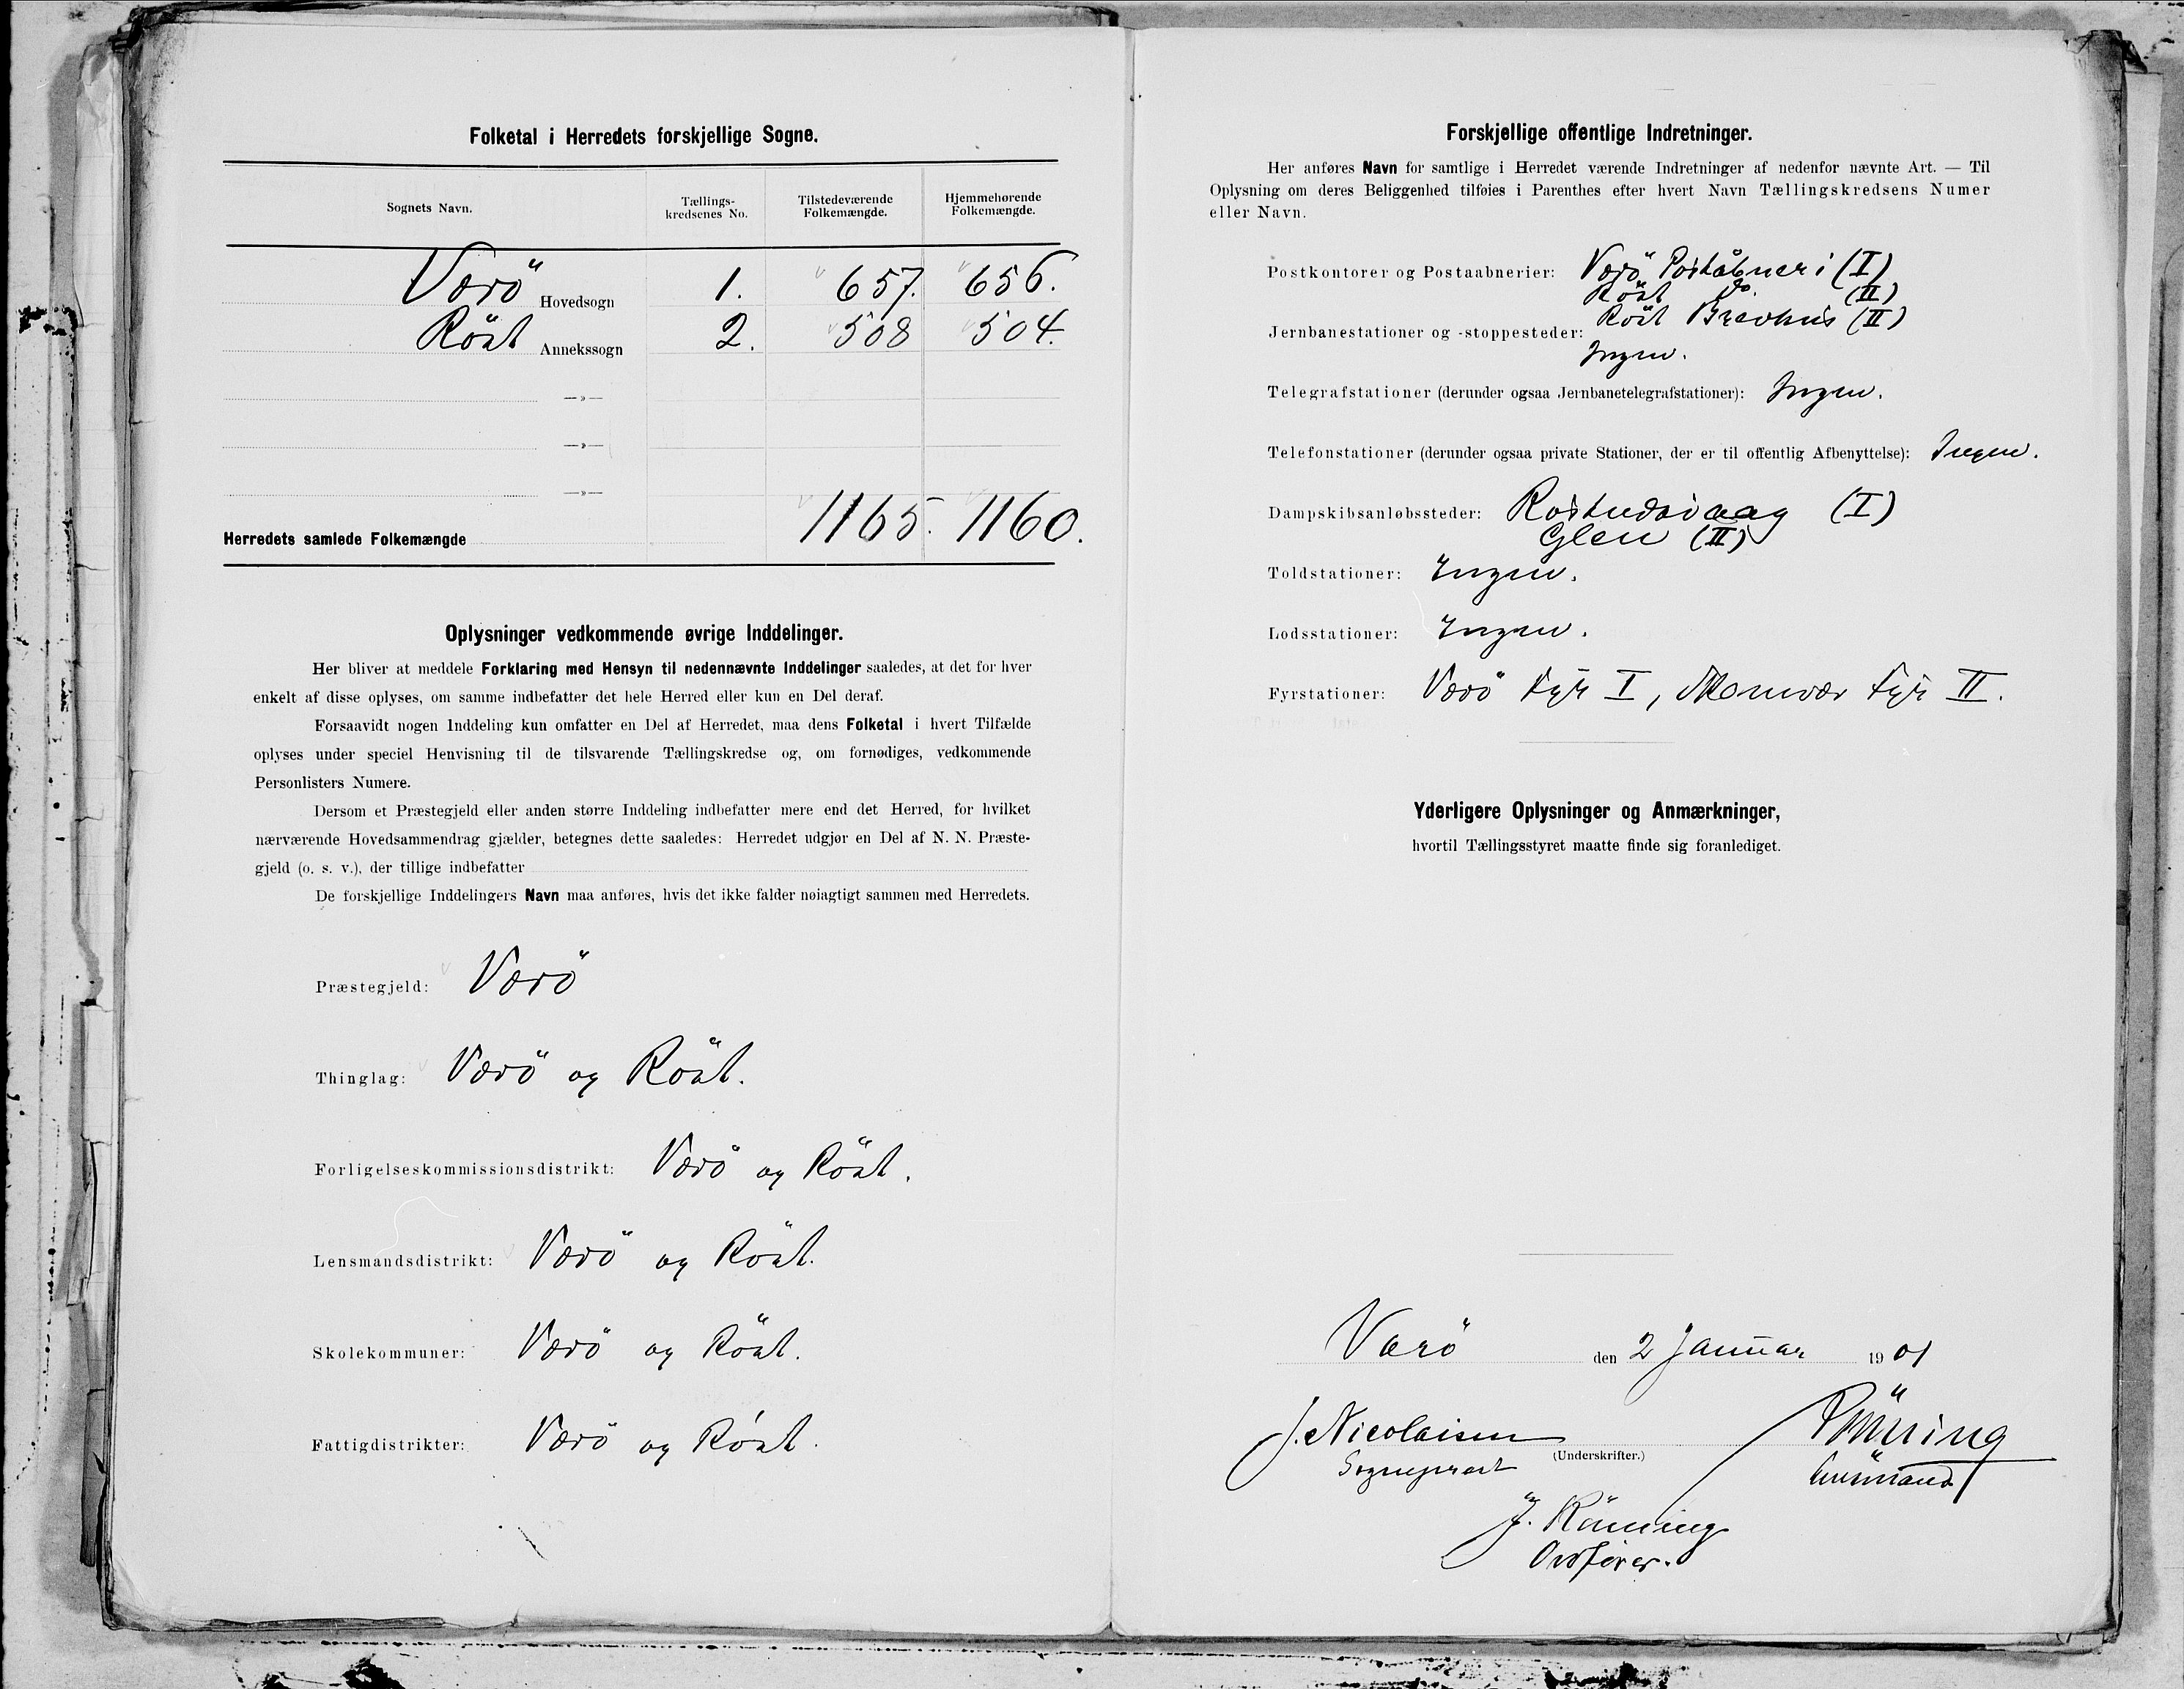 Folketal i Herredets forskjellige Sogne.
Sognets Navn. Tællings-kredsenes No. Tilstedeværende Folkemængde. Hjemmehørende Folkemængde.
Værö Hovedsogn 1. 657. 656.
Röst Annekssogn 2. 508 504.
—»—
—»—
—»—
Herredets samlede Folkemængde 1165. 1160.
Oplysninger vedkommende øvrige Inddelinger.
Her bliver at meddele Forklaring med Hensyn til nedennævnte Inddelinger saaledes, at det for hver
enkelt af disse oplyses, om samme indbefatter det hele Herred eller kun en Del deraf.
Forsaavidt nogen Inddeling kun omfatter en Del af Herredet, maa dens Folketal i hvert Tilfælde
oplyses under speciel Henvisning til de tilsvarende Tællingskredse og, om fornødiges, vedkommende
Personlisters Numere.
Dersom et Præstegjeld eller anden større Inddeling indbefatter mere end det Herred, for hvilket
nærværende Hovedsammendrag gjælder, betegnes dette saaledes: Herredet udgjør en Del af N. N. Præste-
gjeld (o. s. v.), der tillige indbefatter
De forskjellige Inddelingers Navn maa anføres, hvis det ikke falder nøiagtigt sammen med Herredets.
Præstegjeld: Værö
Thinglag: Værö og Röst.
Forligelseskommissionsdistrikt: Værö og Röst.
Lensmandsdistrikt: Værö og Röst.
Skolekommuner: Værö og Röst.
Fattigdistrikter: Værö og Röst.
Forskjellige offentlige Indretninger.
Her anføres Navn for samtlige i Herredet værende Indretninger af nedenfor nævnte Art. — Til
Oplysning om deres Beliggenhed tilføies i Parenthes efter hvert Navn Tællingskredsens Numer
eller Navn.
Postkontorer og Postaabnerier: Værö Poståbneri (I)
Röst do. (II)
Röst Brevhus (II)
Jernbanestationer og -stoppesteder:
Ingen.
Telegrafstationer (derunder ogsaa Jernbanetelegrafstationer): Ingen.
Telefonstationer (derunder ogsaa private Stationer, der er til offentlig Afbenyttelse): Ingen.
Dampskibsanløbssteder: (I)
Glea (II)
Toldstationer: Ingen.
Lodsstationer: Ingen.
Fyrstationer: Værö Fyr I, Fyr II.
Yderligere Oplysninger og Anmærkninger,
hvortil Tællingsstyret maatte finde sig foranlediget.
Værö den 2 Januar 1901
J. Nicolaisen
(Underskrifter.)
Sogneprest
J. Rönning
Ordförer.